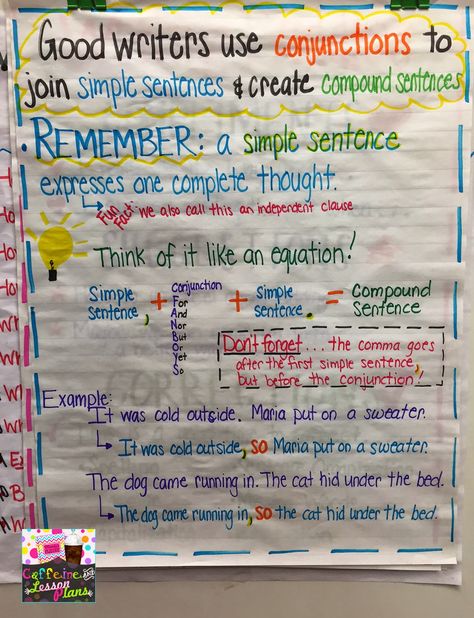 Good writers use conjunctions to
join simple sentences & create compound sentences
• REMEMBER: a simple sentence
expresses one complete thought.
Fun Fact: we also call this an independent clause
Think of it like an equation!
Simple Sentence, + Conjunction + Simple Sentence. = Compound Sentence
For
And
Nor
But
Or
Yet
So
Don't forget... the comma goes
after the first simple sentence,
but before the conjunction!
Example:
It was cold outside. Maria put on a sweater.
It was cold outside, so Maria put on a sweater.
The dog came running in. The cat hid under the bed.
The dog came running in, so the cat hid under the bed.
Caffeine and
Lesson
Plans